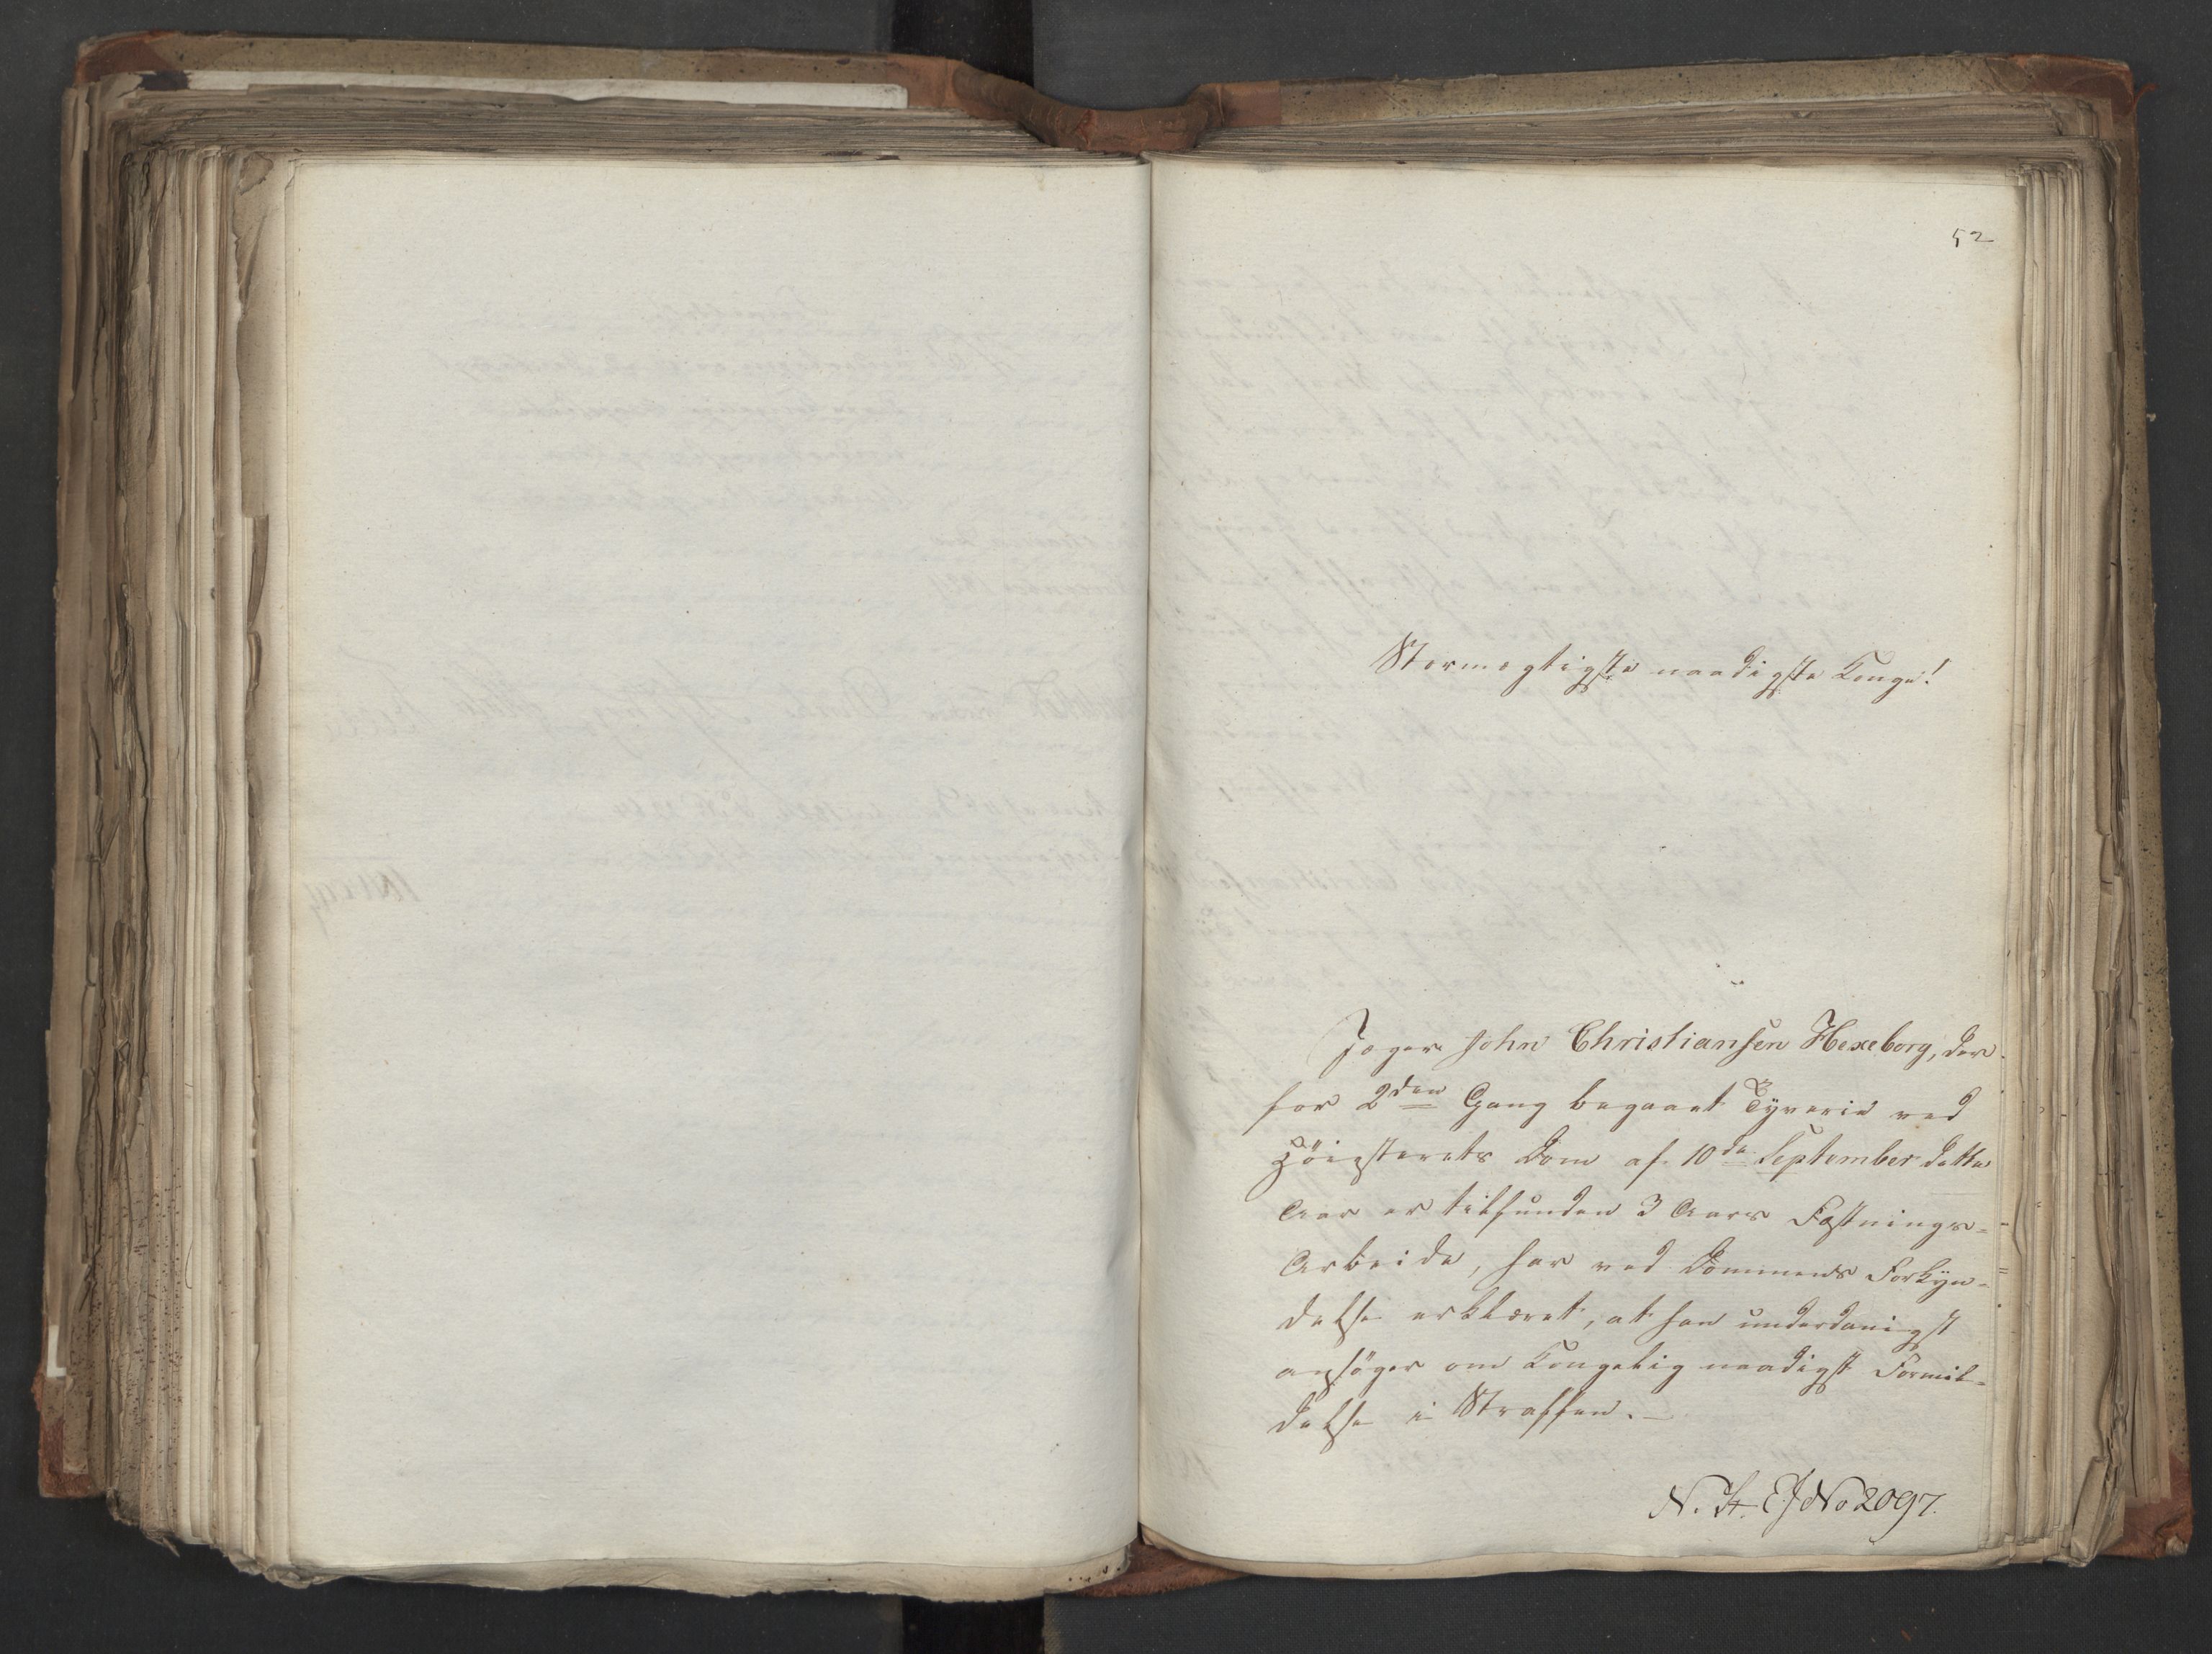 52
Stormægtigste naadigste Konge!
Jæger John Christiansen Hexeborg, der
for 2den Gang begaaet Tyverie ved
Höiesterets Dom af 10de September dette
Aar er tilfunden 3 Aars Fæstnings-
Arbeide, har ved Dommens Forkyn-
delse erklæret, at han underdanigst
ansöger om Kongelig naadigst Formil-
delse i Straffen.-
N. St. E J No 2097.